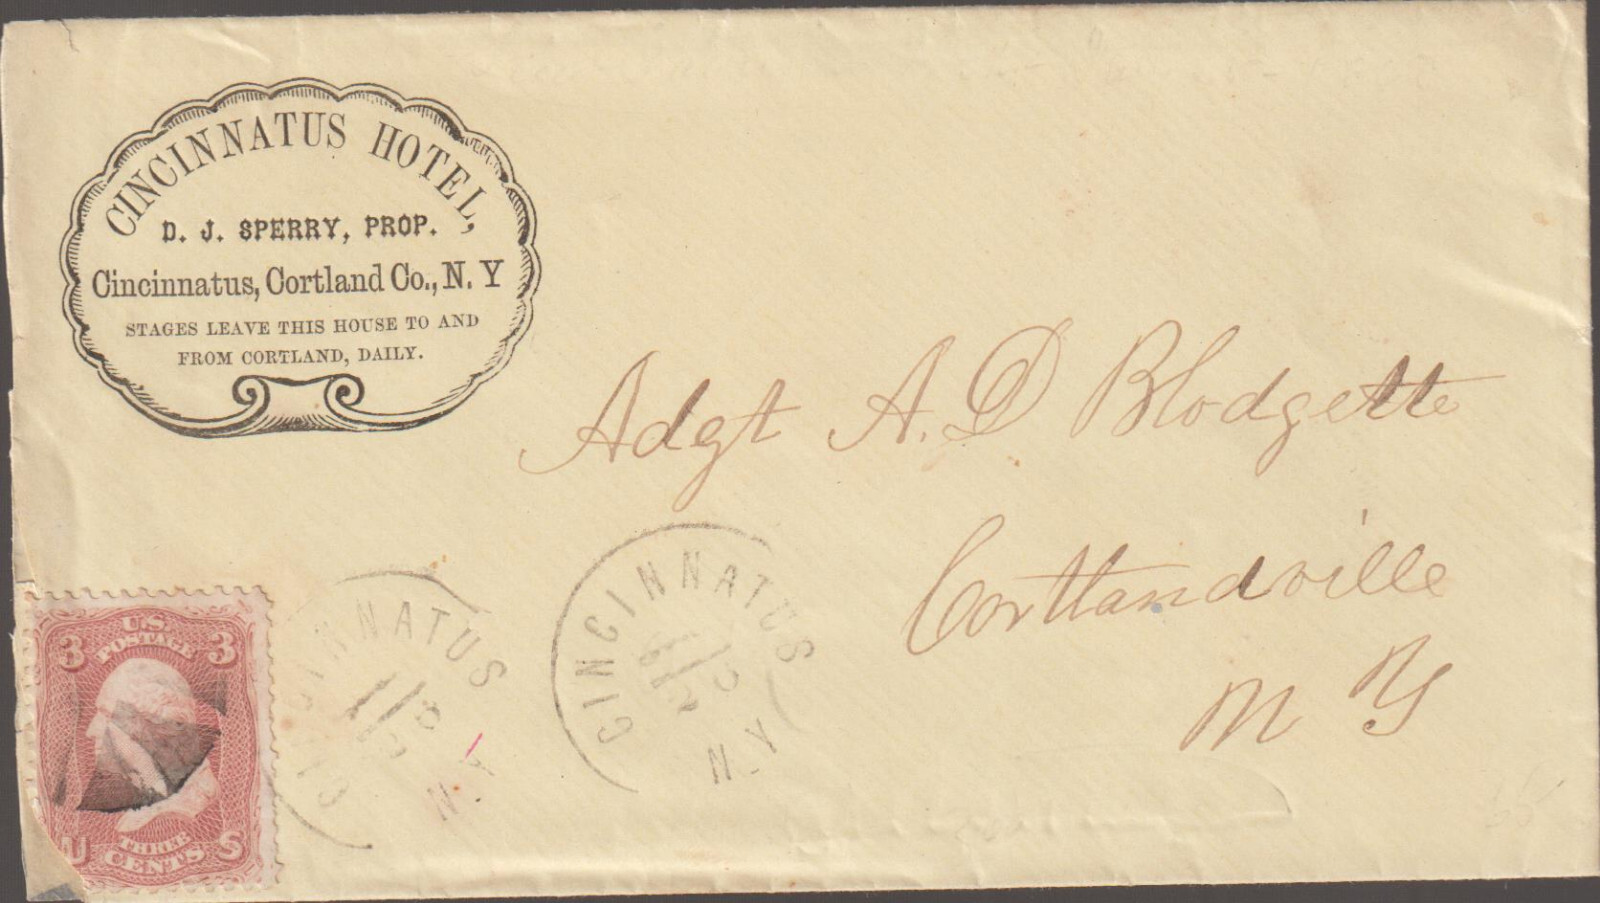 CINCINNATUS HOTEL,
D. J. SPERRY, PROP.
Cincinnatus, Cortland Co., N. Y
STAGES LEAVE THIS HOUSE TO AND
FROM CORTLAND, DAILY.
Adgt A. D Blodgette
Cortlandville
N Y
CINCINNATUS
N.Y
CINNATUS
N.Y
3 U.S. 3
POSTAGE
U S
THREE
CENTS